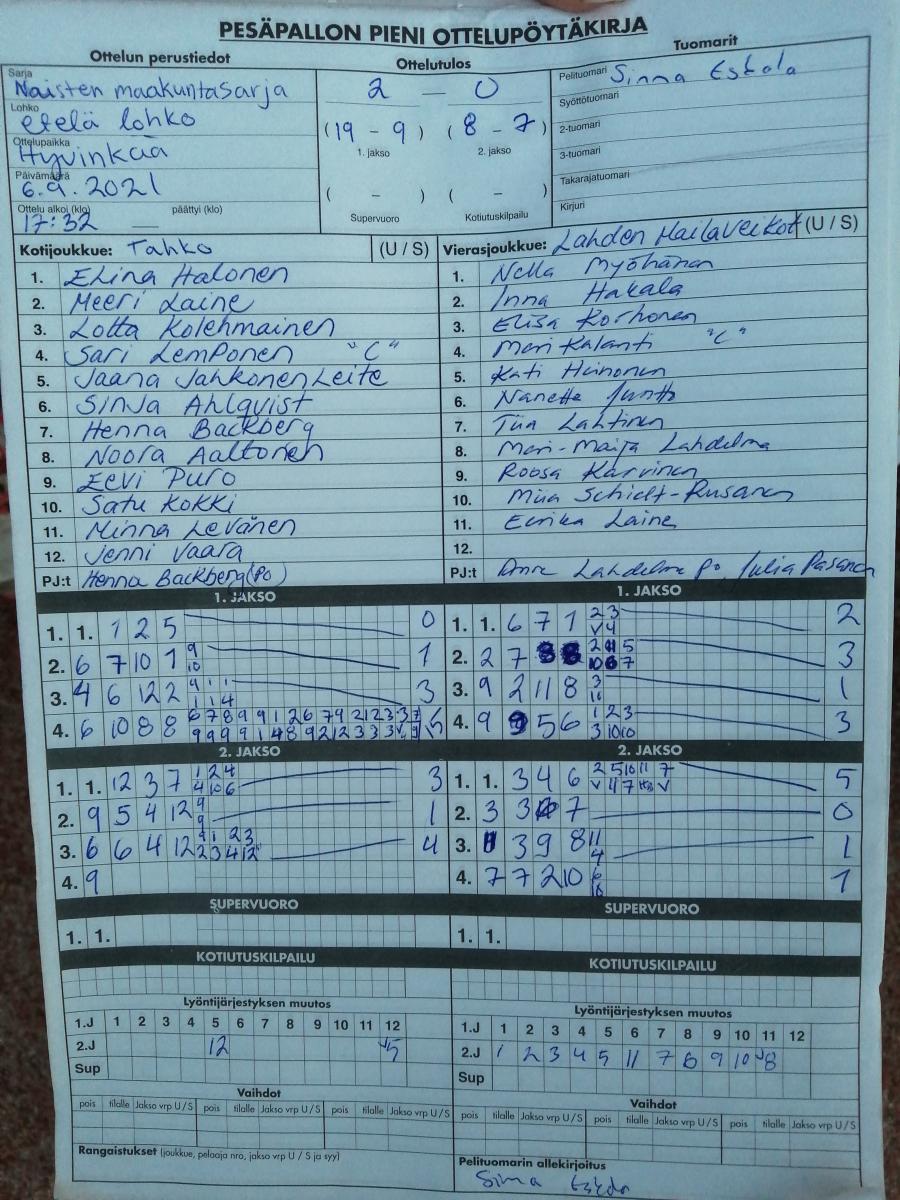 PESÄPALLON PIENI OTTELUPÖYTÄKIRJA
Ottelun perustiedot
Sarja
Naisten maakuntasarja
Lohko
etelä lohko
Ottelupaikka
Hyvinkää
Päivämäärä
6.9.2021
Ottelu alkoi (klo) päättyi (klo)
17:32 —
Ottelutulos
2 — 0
(19 - 9) (8 - 7)
1. jakso 2. jakso
( - ) ( - )
Supervuoro Kotiutuskilpailu
Tuomarit
Pelituomari Sinna Eskola
Syöttötuomari
2-tuomari
3-tuomari
Takarajatuomari
Kirjuri
Kotijoukkue: Tahko (U / S)
1. Elina Halonen
2. Meeri Laine
3. Lotta Kolehmainen
4. Sari Lemponen "C"
5. Jaana Jahkonen Leite
6. Sinja Ahlqvist
7. Henna Backberg
8. Noora Aaltonen
9. Eevi Puro
10. Satu Kokki
11. Minna Levänen
12. Jenni Vaara
PJ:t Henna Backberg (Po)
Vierasjoukkue: Lahden Mailaveikot (U / S)
1. Nella Myöhänen
2. Inna Hakala
3. Elisa Korhonen
4. Meri Kalanti "C"
5. Kati Heinonen
6. Nanette
7. Tiia Lahtinen
8. Meri-Maija Lahdelma
9. Roosa Karvinen
10. Miia Schildt-Rusanen
11. Eerika Laine
12.
PJ:t Anne Lahdelma po Julia Pasanen
1. JAKSO
1. 1. 1 2 5 0
2. 6 7 10 1 9 10 1
3. 4 6 12 2 3
4. 6 10 8 8 15
1. JAKSO
1. 1. 6 7 1 2 3 V 4 2
2. 2 7 3
3. 9 2 11 8 3 11 1
4. 9 5 6 1 2 3 3 10 10 3
2. JAKSO
1. 1. 12 3 7 1 2 4 4 10 6 3
2. 9 5 4 12 9 9 1
3. 6 6 4 12 9 1 2 3 2 3 4 12 4
4. 9
2. JAKSO
1. 1. 3 4 6 2 5 10 11 7 5
2. 3 3 7 0
3. 3 9 8 11 4 1
4. 7 7 2 10 6 10 1
SUPERVUORO
1. 1.
SUPERVUORO
1. 1.
KOTIUTUSKILPAILU
KOTIUTUSKILPAILU
Lyöntijärjestyksen muutos
1.J 1 2 3 4 5 6 7 8 9 10 11 12
2.J 12 5
Sup
Lyöntijärjestyksen muutos
1.J 1 2 3 4 5 6 7 8 9 10 11 12
2.J 1 2 3 4 5 11 7 6 9 10 8
Sup
Vaihdot
pois tilalle Jakso vrp U / S pois tilalle Jakso vrp U / S pois tilalle Jakso vrp U / S
Vaihdot
pois tilalle Jakso vrp U / S pois tilalle Jakso vrp U / S pois tilalle Jakso vrp U / S
Rangaistukset (joukkue, pelaaja nro, jakso vrp U / S ja syy)
Pelituomarin allekirjoitus
Sinna Eskola